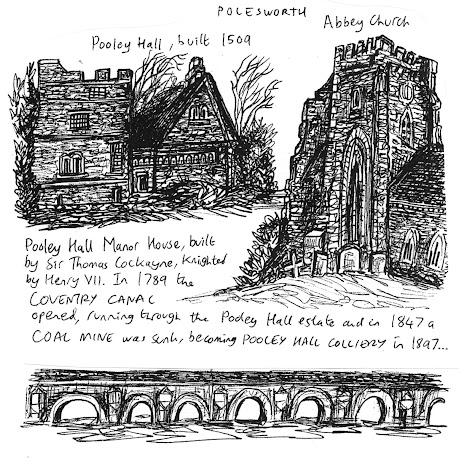 POLESWORTH
Abbey Church
Pooley Hall, built 1509
Pooley Hall Manor House, built
by Sir Thomas Cockayne, knighted
by Henry VII. In 1789 the
COVENTRY CANAL
opened, running through the Pooley Hall estate and in 1847 a
COAL MINE was sunk, becoming POOLEY HALL COLLIERY in 1897...